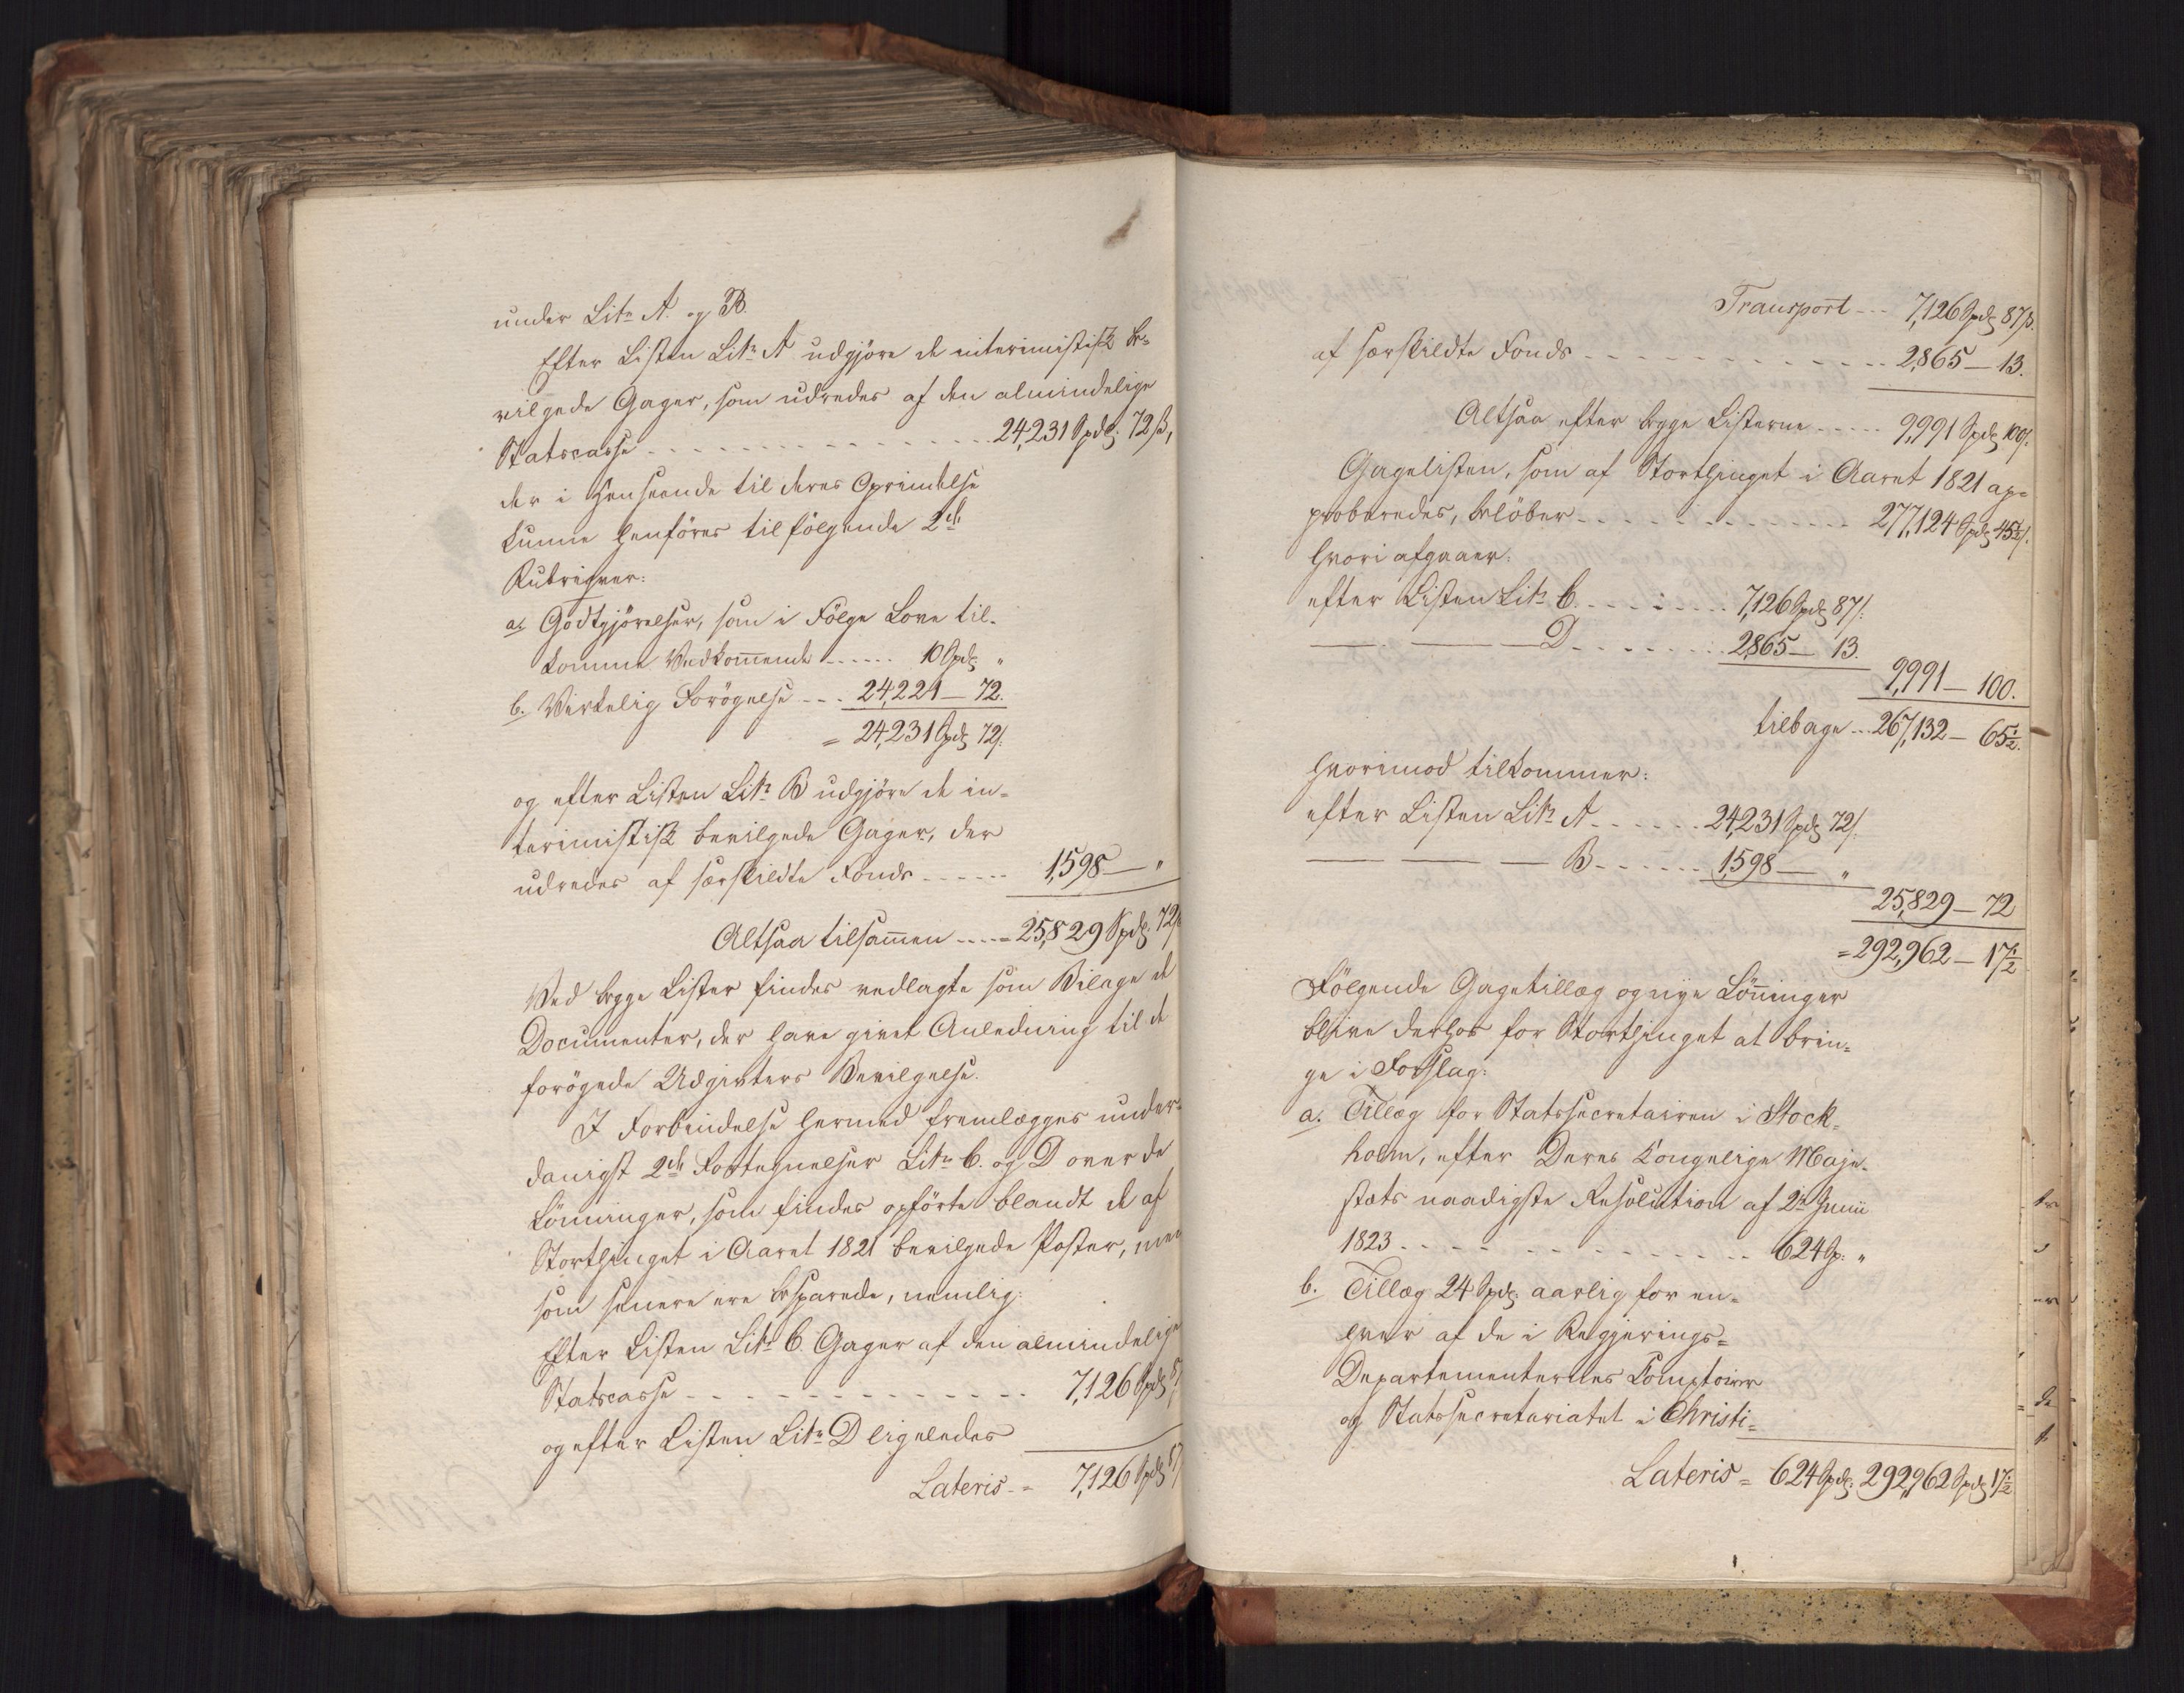 under Litr A. og B.
Efter Listen Litr A udgjøre de interimistisk be=
vilgede Gager, som udredes af den almindelige
Statscasse - - - - - - - 24,231 Spd. 72 ß,
der i Henseende til deres Oprindelse
kunne henføres til følgende 2de
Rubriqver:
a. Godtgjørelser, som i Følge Love til-
komme Vedkommende - - - - 10 Spd. "
b. Virkelig Forøgelse - - - 24,221 - 72.
= 24,231 Spd. 72 ß.
og efter Listen Litr B udgjøre de in=
terimistisk bevilgede Gager, der
udredes af særskildte Fonds - - - - 1,598 - "
Altsaa tilsammen - - - = 25,829 Spd. 72 ß
Ved begge Lister findes vedlagte som Bilage de
Documenter, der have givet Anledning til de
forøgede Udgivters Bevilgelse.
I Forbindelse hermed fremlægges under=
danigst 2de Fortegnelser Litr C. og D over de
Lønninger, som findes opførte blandt de af
Storthinget i Aaret 1821 bevilgede Poster, men
som senere ere besparede, nemlig:
Efter Listen Litr C. Gager af den almindelige
Statscasse - - - - - - - 7,126 Spd. 87
og efter Listen Litr D ligeledes
Lateris - = 7,126 Spd. 87
Transport - - - 7,126 Spd. 87 ß.
af særskildte Fonds - - - - - - - 2,865 - 13.
Altsaa efter begge Listerne - - - - 9,991 Spd. 100 ß.
Gagelisten, som af Storthinget i Aaret 1821 ap=
proberedes, beløber - - - - - - - 277,124 Spd. 45½ ß.
hvori afgaaer:
efter Listen Litr C. - - - - - 7,126 Spd. 87 ß.
— — — D - - - - - 2,865 - 13.
9,991 - 100.
tilbage - - 267,132 - 65½.
hvorimod tilkommer:
efter Listen Litr A - - - - - 24,231 Spd. 72 ß.
— — — B - - - - - 1,598 - "
25,829 - 72
= 292,962 - 17½
Følgende Gagetillæg og nye Lønninger
blive derhos for Storthinget at brin=
ge i Forslag:
a. Tillæg for Statssecretairen i Stock=
holm, efter Deres Kongelige Maje=
stæts naadigste Resolution af 2n Junii
1823 - - - - - - - 624 Sp. "
b. Tillæg 24 Spd. aarlig for en=
hver af de i Regjerings=
Departementernes Comptoirer
og Statssecretariatet i Christi=
Lateris = 624 Spd. 292,962 Spd. 17½